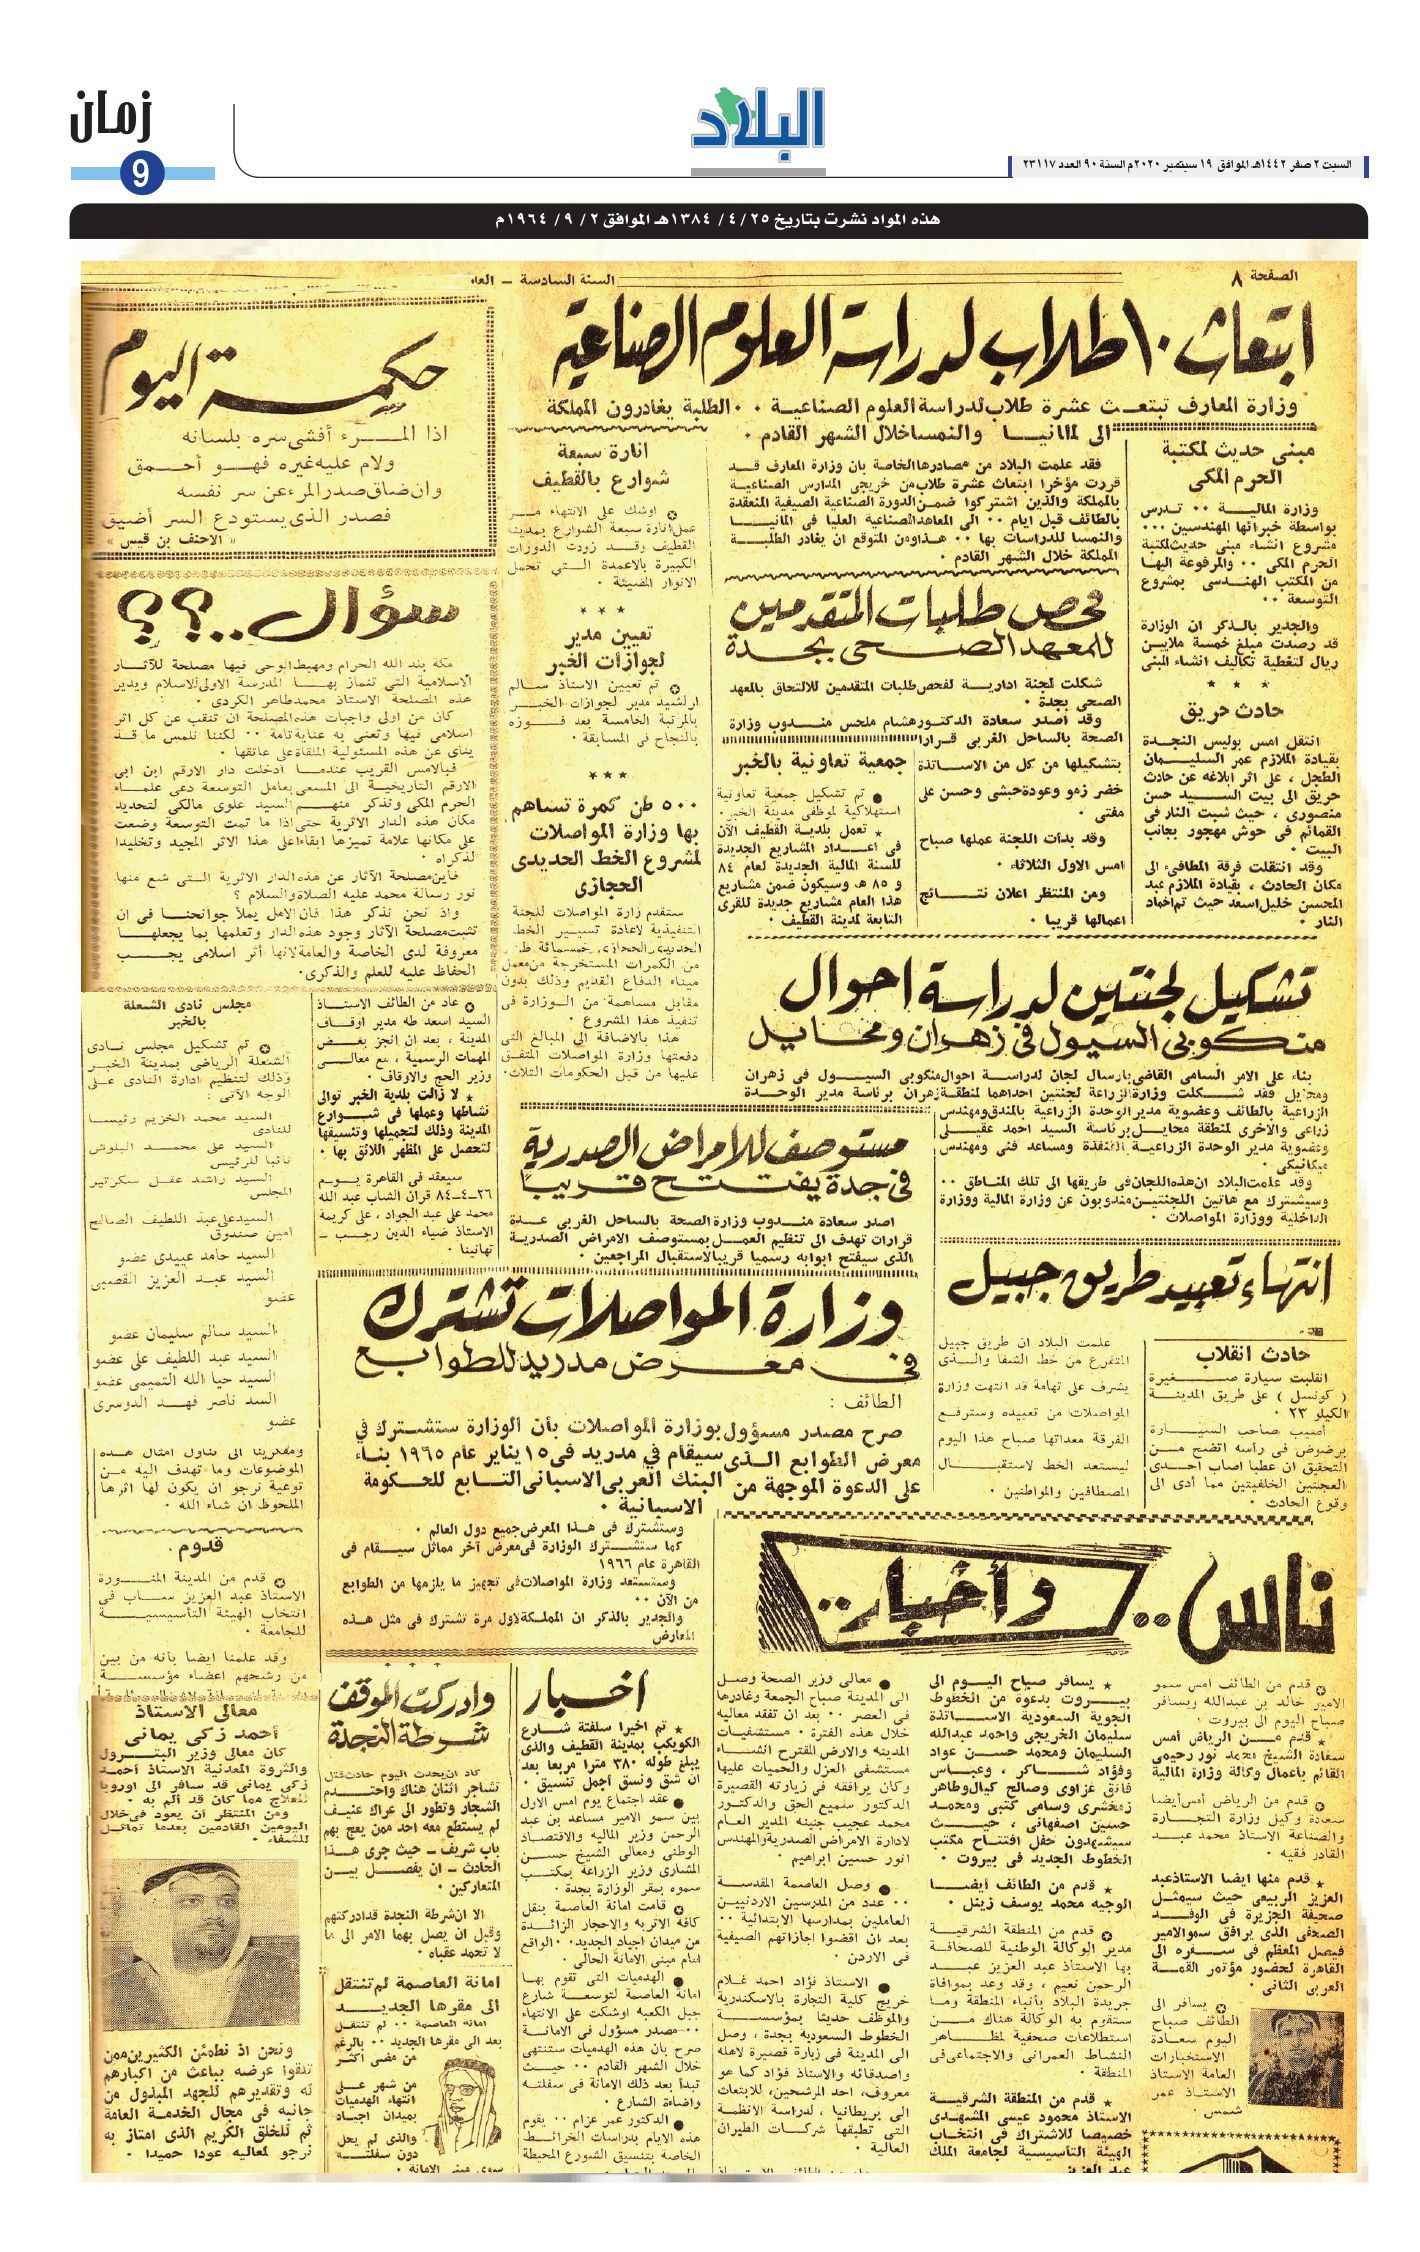 زمان
9
البلاد
السبت ٢ صفر ١٤٤٢هـ الموافق ١٩ سبتمبر ٢٠٢٠م السنة ٩٠ العدد ٢٣١١٧
هذه المواد نشرت بتاريخ ٢٥/ ٤/ ١٣٨٤هـ الموافق ٢/ ٩/ ١٩٦٤م
الصفحة ٨
السنة السادسة ـ
ابتعاث ١٠ طلاب لدراسة العلوم الصناعية
وزارة المعارف تبتعث عشرة طلاب لدراسة العلوم الصناعية ٠٠ الطلبة يغادرون المملكة
الى المانيا والنمسا خلال الشهر القادم ٠
فقد علمت البلاد من مصادرها الخاصة بان وزارة المعارف قد
قررت مؤخرا ابتعاث عشرة طلاب من خريجي المدارس الصناعية
بالمملكة والذين اشتركوا ضمن الدورة الصناعية الصيفية المنعقدة
بالطائف قبل ايام ٠٠ الى المعاهد الصناعية العليا فى المانيا
والنمسا للدراسات بها ٠٠ هذا ومن المتوقع ان يغادر الطلبة
المملكة خلال الشهر القادم ٠
مبنى حديث لمكتبة
الحرم المكى
وزارة المالية ٠٠ تدرس
بواسطة خبرائها المهندسين ٠٠٠
مشروع انشاء مبنى حديث لمكتبة
الحرم المكى ٠٠ والمرفوعة اليها
من المكتب الهندسى بمشروع
التوسعة ٠٠
والجدير بالذكر ان الوزارة
قد رصدت مبلغ خمسة ملايين
ريال لتغطية تكاليف انشاء المبنى
حادث حريق
انتقل امس بوليس النجدة
بقيادة الملازم عمر السليمان
الطجل ، على اثر ابلاغه عن حادث
حريق الى بيت السيد حسن
منصورى ، حيث شبت النار فى
القمائم فى حوش مهجور بجانب
البيت ٠
وقد انتقلت فرقة المطافىء الى
مكان الحادث ، بقيادة الملازم عبد
المحسن خليل اسعد حيث تم اخماد
النار ٠
فحص طلبات المتقدمين
للمعهد الصحى بجدة
شكلت لجنة ادارية لفحص طلبات المتقدمين للالتحاق بالمعهد
الصحى بجدة ٠
وقد أصدر سعادة الدكتور هشام ملحس مندوب وزارة
الصحة بالساحل الغربى قرارا
بتشكيلها من كل من الاساتذة
خضر زمو وعودة حبشى وحسن على
مفتى ٠
وقد بدأت اللجنة عملها صباح
امس الاول الثلاثاء ٠
ومن المنتظر اعلان نتائج
اعمالها قريبا ٠
جمعية تعاونية بالخبر
● تم تشكيل جمعية تعاونية
استهلاكية لموظفى مدينة الخبر ٠
★ تعمل بلدية القطيف الآن
فى اعداد المشاريع الجديدة
للسنة المالية الجديدة لعام ٨٤
و ٨٥ هـ وسيكون ضمن مشاريع
هذا العام مشاريع جديدة للقرى
التابعة لمدينة القطيف ٠
انارة سبعة
شوارع بالقطيف
✪ اوشك على الانتهاء من
عمل انارة سبعة الشوارع بمدينة
القطيف وقد زودت الدورات
الكبيرة بالاعمدة التى تحمل
الانوار المضيئة ٠
★ ★ ★
تعيين مدير
لجوازات الخبر
✪ تم تعيين الاستاذ سالم
ارلشيد مدير لجوازات الخبر
بالمرتبة الخامسة بعد فوزه
بالنجاح فى المسابقة ٠
★★★
٥٠٠ طن كمرة تساهم
بها وزارة المواصلات
لمشروع الخط الحديدى
الحجازى
ستقدم زارة المواصلات للجنة
التنفيذية لاعادة تسيير الخط
الحديدى الحجازى خمسمائة طن
من الكمرات المستخرجة من معمل
ميناء الدفاع القديم وذلك بدون
مقابل مساهمة من الوزارة فى
تنفيذ هذا المشروع ٠
هذا بالاضافة الى المبالغ التى
دفعتها وزارة المواصلات المتفق
عليها من قبل الحكومات الثلاث ٠
حكمة اليوم
اذا المرء أفشى سره بلسانه
ولام عليه غيره فهو أحمق
وان ضاق صدر المرء عن سر نفسه
فصدر الذى يستودع السر أضيق
« الاحنف بن قيس »
سؤال ..؟؟
مكة بلد الله الحرام ومهبط الوحى فيها مصلحة للآثار
الاسلامية التى تمتاز بها المدرسة الاولى للاسلام ويدير
هذه المصلحة الاستاذ محمد طاهر الكردى ٠
كان من اولى واجبات هذه المصلحة ان تنقب عن كل اثر
اسلامى فيها وتعنى به عناية تامة ٠٠ لكننا نلمس ما قد
يناى عن هذه المسئولية الملقاة على عاتقها ٠
فبالامس القريب عندما أدخلت دار الارقم ابن ابى
الارقم التاريخية الى المسعى بعامل التوسعة دعى علماء
الحرم المكى ونذكر منهم السيد علوى مالكى لتحديد
مكان هذه الدار الاثرية حتى اذا ما تمت التوسعة وضعت
على مكانها علامة تميزها ابقاء على هذا الاثر المجيد وتخليدا
لذكراه ٠
فاين مصلحة الآثار عن هذه الدار الاثرية التى شع منها
نور رسالة محمد عليه الصلاة والسلام ؟
واذ نحن نذكر هذا فان الامل يملأ جوانحنا فى ان
تثبت مصلحة الآثار وجود هذه الدار وتعلمها بما يجعلها
معروفة لدى الخاصة والعامة لانها أثر اسلامى يجب
الحفاظ عليه للعلم والذكرى.
تشكيل لجنتين لدراسة احوال
منكوبى السيول فى زهران ومحايل
بناء على الامر السامى القاضى بارسال لجان لدراسة احوال منكوبى السيول فى زهران
ومحايل فقد شكلت وزارة الزراعة لجنتين احداهما لمنطقة زهران برئاسة مدير الوحدة
الزراعية بالطائف وعضوية مدير الوحدة الزراعية بالمندق ومهندس
زراعى والاخرى لمنطقة محايل برئاسة السيد احمد عقيلى
وعضوية مدير الوحدة الزراعية بالقنفذة ومساعد فنى ومهندس
ميكانيكى ٠
وقد علمت البلاد ان هذه اللجان فى طريقها الى تلك المناطق ٠٠
وسيشترك مع هاتين اللجنتين مندوبون عن وزارة المالية ووزارة
الداخلية ووزارة المواصلات ٠
مستوصف للامراض الصدرية
فى جدة يفتتح قريبا
اصدر سعادة مندوب وزارة الصحة بالساحل الغربى عدة
قرارات تهدف الى تنظيم العمل بمستوصف الامراض الصدرية
الذى سيفتح ابوابه رسميا قريبا لاستقبال المراجعين ٠
✪ عاد من الطائف الاستاذ
السيد اسعد طه مدير اوقاف
المدينة ، بعد ان انجز بعض
المهمات الرسمية ، مع معالى
وزير الحج والاوقاف ٠
★ لا زالت بلدية الخبر توالى
نشاطها وعملها فى شوارع
المدينة وذلك لتجميلها وتنسيقها
لتحصل على المظهر اللائق بها ٠
سيعقد فى القاهرة يوم
٢٦ـ٤ـ٨٤ قران الشاب عبد الله
محمد على عبد الجواد ، على كريمة
الاستاذ ضياء الدين رجب ـ
تهانينا ٠
مجلس نادى الشعلة
بالخبر
✪ تم تشكيل مجلس نادى
الشعلة الرياضى بمدينة الخبر
وذلك لتنظيم ادارة النادى على
الوجه الآتى :
السيد محمد الخريم رئيسا
للنادى
السيد على محمد البلوش
نائبا للرئيس
السيد راشد عقل سكرتير
المجلس
السيد على عبد اللطيف الصالح
أمين صندوق
السيد حامد عبيدى عضو
السيد عبد العزيز القصبى
عضو
السيد سالم سليمان عضو
السيد عبد اللطيف على عضو
السيد حيا الله التميمى عضو
السد ناصر فهد الدوسرى
عضو
ومفكرينا الى تناول امثال هذه
الموضوعات وما تهدف اليه من
توعية نرجو ان يكون لها اثرها
الملحوظ ان شاء الله ٠
قدوم
✪ قدم من المدينة المنورة
الاستاذ عبد العزيز ساب فى
انتخاب الهيئة التأسيسية
للجامعة ٠
وقد علمنا ايضا بانه من بين
من رشحهم اعضاء مؤسسة
معالى الاستاذ
أحمد زكى يمانى
كان معالى وزير البترول
والثروة المعدنية الاستاذ أحمد
زكى يمانى قد سافر الى اوروبا
للعلاج مما كان قد ألم به ٠
ومن المنتظر أن يعود فى خلال
اليومين القادمين بعدما تماثل
للشفاء ٠
ونحن اذ نطمئن الكثيرين ممن
تلقوا عرضه بباعث من اكبارهم
له وتقديرهم للجهد المبذول من
جانبه فى مجال الخدمة العامة
ثم للخلق الكريم الذى امتاز به
نرجو لمعاليه عودا حميدا ٠
وزارة المواصلات تشترك
فى معرض مدريد للطوابع
الطائف :
صرح مصدر مسؤول بوزارة المواصلات بأن الوزارة ستشترك في
معرض الطوابع الذى سيقام في مدريد فى ١٥ يناير عام ١٩٦٥ بناء
على الدعوة الموجهة من البنك العربى الاسبانى التابع للحكومة
الاسبانية ٠
وستشترك فى هذا المعرض جميع دول العالم ٠
كما ستشترك الوزارة فى معرض آخر مماثل سيقام فى
القاهرة عام ١٩٦٦
وستستعد وزارة المواصلات فى تجهيز ما يلزمها من الطوابع
من الآن ٠٠
والجدير بالذكر ان المملكة لاول مرة تشترك فى مثل هذه
المعارض
انتهاء تعبيد طريق جبيل
علمت البلاد ان طريق جبيل
المتفرع من خط الشفا والذى
يشرف على تهامة قد انتهت وزارة
المواصلات من تعبيده وسترفع
الفرقة معداتها صباح هذا اليوم
ليستعد الخط لاستقبال
المصطافين والمواطنين ٠
حادث انقلاب
انقلبت سيارة صغيرة
( كونسل ) على طريق المدينة
الكيلو ٢٣ ٠
أصيب صاحب السيارة
برضوض فى رأسه اتضح من
التحقيق ان عطبا اصاب احدى
العجلتين الخلفيتين مما أدى الى
وقوع الحادث ٠
ناس .. وأخبار ..
✪ قدم من الطائف امس سمو
الامير خالد بن عبدالله ويسافر
صباح اليوم الى بيروت ٠
★ قدم من الرياض أمس
سعادة الشيخ محمد نور رحيمى
القائم بأعمال وكالة وزارة المالية
✪ قدم من الرياض أمس أيضا
سعادة وكيل وزارة التجارة
والصناعة الاستاذ محمد عبد
القادر فقيه ٠
★ قدم منها ايضا الاستاذ عبد
العزيز الربيعى حيث سيمثل
صحيفة الجزيرة فى الوفد
الصحفى الذى يرافق سمو الامير
فيصل المعظم فى سفره الى
القاهرة لحضور مؤتمر القمة
العربى الثانى ٠
✪ يسافر الى
الطائف صباح
اليوم سعادة
الاستخبارات
العامة الاستاذ
الاستاذ عمر
شمس ٠
★ يسافر صباح اليوم الى
بيروت بدعوة من الخطوط
الجوية السعودية الاساتذة
سليمان الخريجى واحمد عبدالله
السليمان ومحمد حسن عواد
وفؤاد شاكر ، وعباس
فائق غزاوى وصالح كيال وطاهر
زمخشرى وسامى كتبى ومحمد
حسين اصفهانى ، حيث
سيشهدون حفل افتتاح مكتب
الخطوط الجديد فى بيروت ٠
★ قدم من الطائف أيضا
الوجيه محمد يوسف زينل ٠
✪ قدم من المنطقة الشرقية
مدير الوكالة الوطنية للصحافة
بها الاستاذ عبد العزيز عبد
الرحمن نعيم ، وقد وعد بموافاة
جريدة البلاد بأنباء المنطقة وما
ستقوم به الوكالة هناك من
استطلاعات صحفية لمظاهر
النشاط العمرانى والاجتماعى فى
المنطقة ٠
★ قدم من المنطقة الشرقية
الاستاذ محمود عيسى المشهدى
خصيصا للاشتراك فى انتخاب
الهيئة التأسيسية لجامعة الملك
عبد العزيز
● معالى وزير الصحة وصل
الى المدينة صباح الجمعة وغادرها
فى العصر ٠٠ بعد ان تفقد معاليه
خلال هذه الفترة ٠ مستشفيات
المدينه والارض المقترح انشاء
مستشفى العزل والحميات عليها
وكان يرافقه فى زيارته القصيرة
الدكتور سميع الحق والدكتور
محمد عجيب جنينه المدير العام
لادارة الامراض الصدرية والمهندس
انور حسين ابراهيم ٠
● وصل العاصمة المقدسة
٠٠ عدد من المدرسين الاردنيين
العاملين بمدارسها الابتدائية ٠٠
بعد ان اقضوا اجازاتهم الصيفية
فى الاردن ٠
● الاستاذ فؤاد احمد غلام
خريج كلية التجارة بالاسكندرية
والموظف حديثا بمؤسسة
الخطوط السعودية بجدة ، وصل
الى المدينة فى زيارة قصيرة لاهله
واصدقائه والاستاذ فؤاد كما هو
معروف، احد المرشحين، للابتعاث
الى بريطانيا ، لدراسة الانظمة
التى تطبقها شركات الطيران
العالية ٠
أخبار
★ تم اخيرا سفلتة شارع
الكويكب بمدينة القطيف والذى
يبلغ طوله ٣٨٠ مترا مربعا بعد
ان شق ونسق أجمل تنسيق ٠
● عقد اجتماع يوم امس الاول
بين سمو الامير مساعد بن عبد
الرحمن وزير الماليه والاقتصاد
الوطنى ومعالى الشيخ حسن
المشارى وزير الزراعة بمكتب
سموه بمقر الوزارة بجدة ٠
✪ قامت امانة العاصمة بنقل
كافة الاتربه والاحجار الزائدة
من ميدان اجياد الجديد ٠٠ الواقع
امام مبنى الامانة الحالى ٠
● الهدميات التى تقوم بها
امانة العاصمة لتوسعة شارع
جبل الكعبه اوشكت على الانتهاء
٠٠ مصدر مسؤول فى الامانة
صرح بان هذه الهدميات ستنتهى
خلال الشهر القادم ٠٠ حيث
تبدأ بعد ذلك الامانة فى سفلتة
واضاءة الشارع ٠
● الدكتور عمر عزام ٠٠ يقوم
هذه الايام بدراسات الخرائط
الخاصة بتنسيق الشوارع المحيطة
وادركت الموقف
شرطة النجدة
كاد ان يحدث اليوم حادث قتل
تشاجر اثنان هناك واحتدم
الشجار وتطور الى عراك عنيف
لم يستطع معه احد ممن يعج بهم
باب شريف ـ حيث جرى هذا
الحادث ـ ان يفصل بين
المتعاركين ٠
الا ان شرطة النجدة قد ادركتهم
وقبل ان يصل بهما الامر الى ما
لا تحمد عقباه ٠
امانة العاصمة لم تنتقل
الى مقرها الجديد
امانه العاصمة ٠٠ لم تنتقل
بعد الى مقرها الجديد ٠٠ بالرغم
من مضى اكثر
من شهر على
انتهاء الهدميات
بميدان اجياد
والذى لم يحل
دون سفلتته
سوى مبنى الامانة ٠